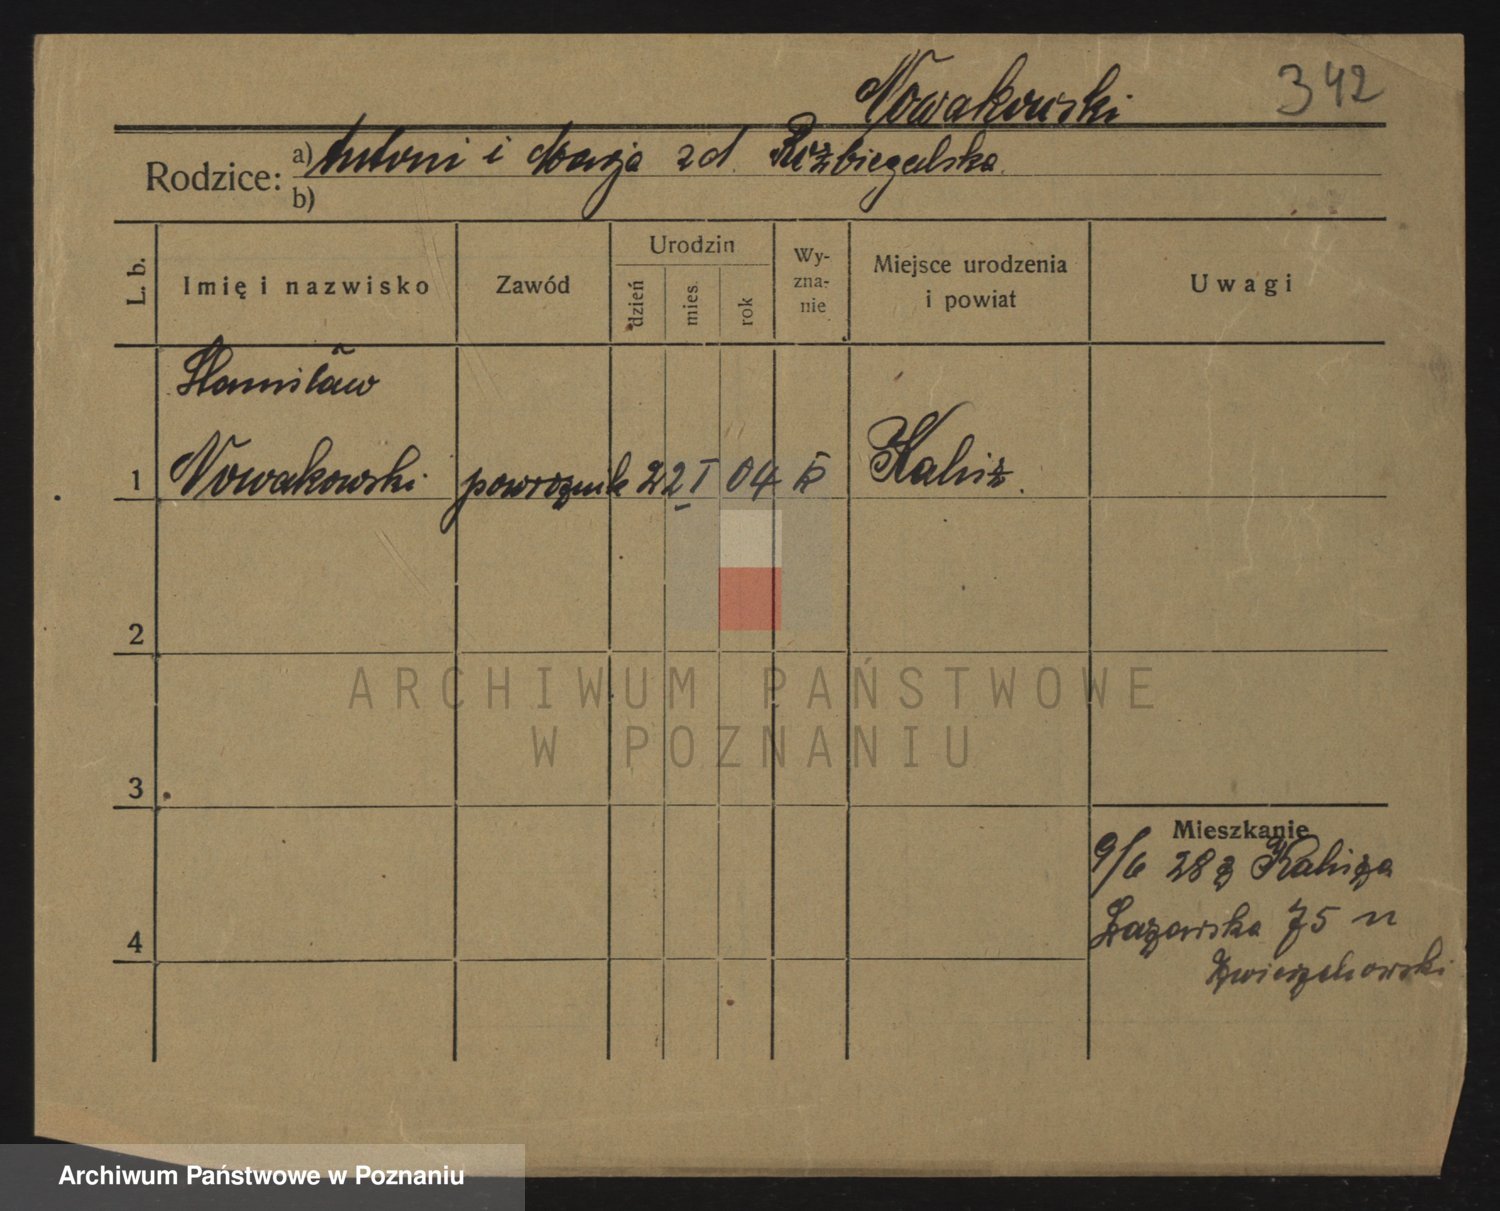 Nowakowski 342
Rodzice: a) Antoni i Marja zd.
b)
L. b. Imię i nazwisko Zawód Urodzin dzień mies. rok Wy-zna-nie Miejsce urodzenia i powiat Uwagi
Stanisław
1 Nowakowski powroźnik 22 I 04 Kalisz.
2
3
Mieszkanie
9/6 28 z Kalisza
4 Łazarska 75 u
Zwierzchowski
ARCHIWUM PAŃSTWOWE
W POZNANIU
Archiwum Państwowe w Poznaniu